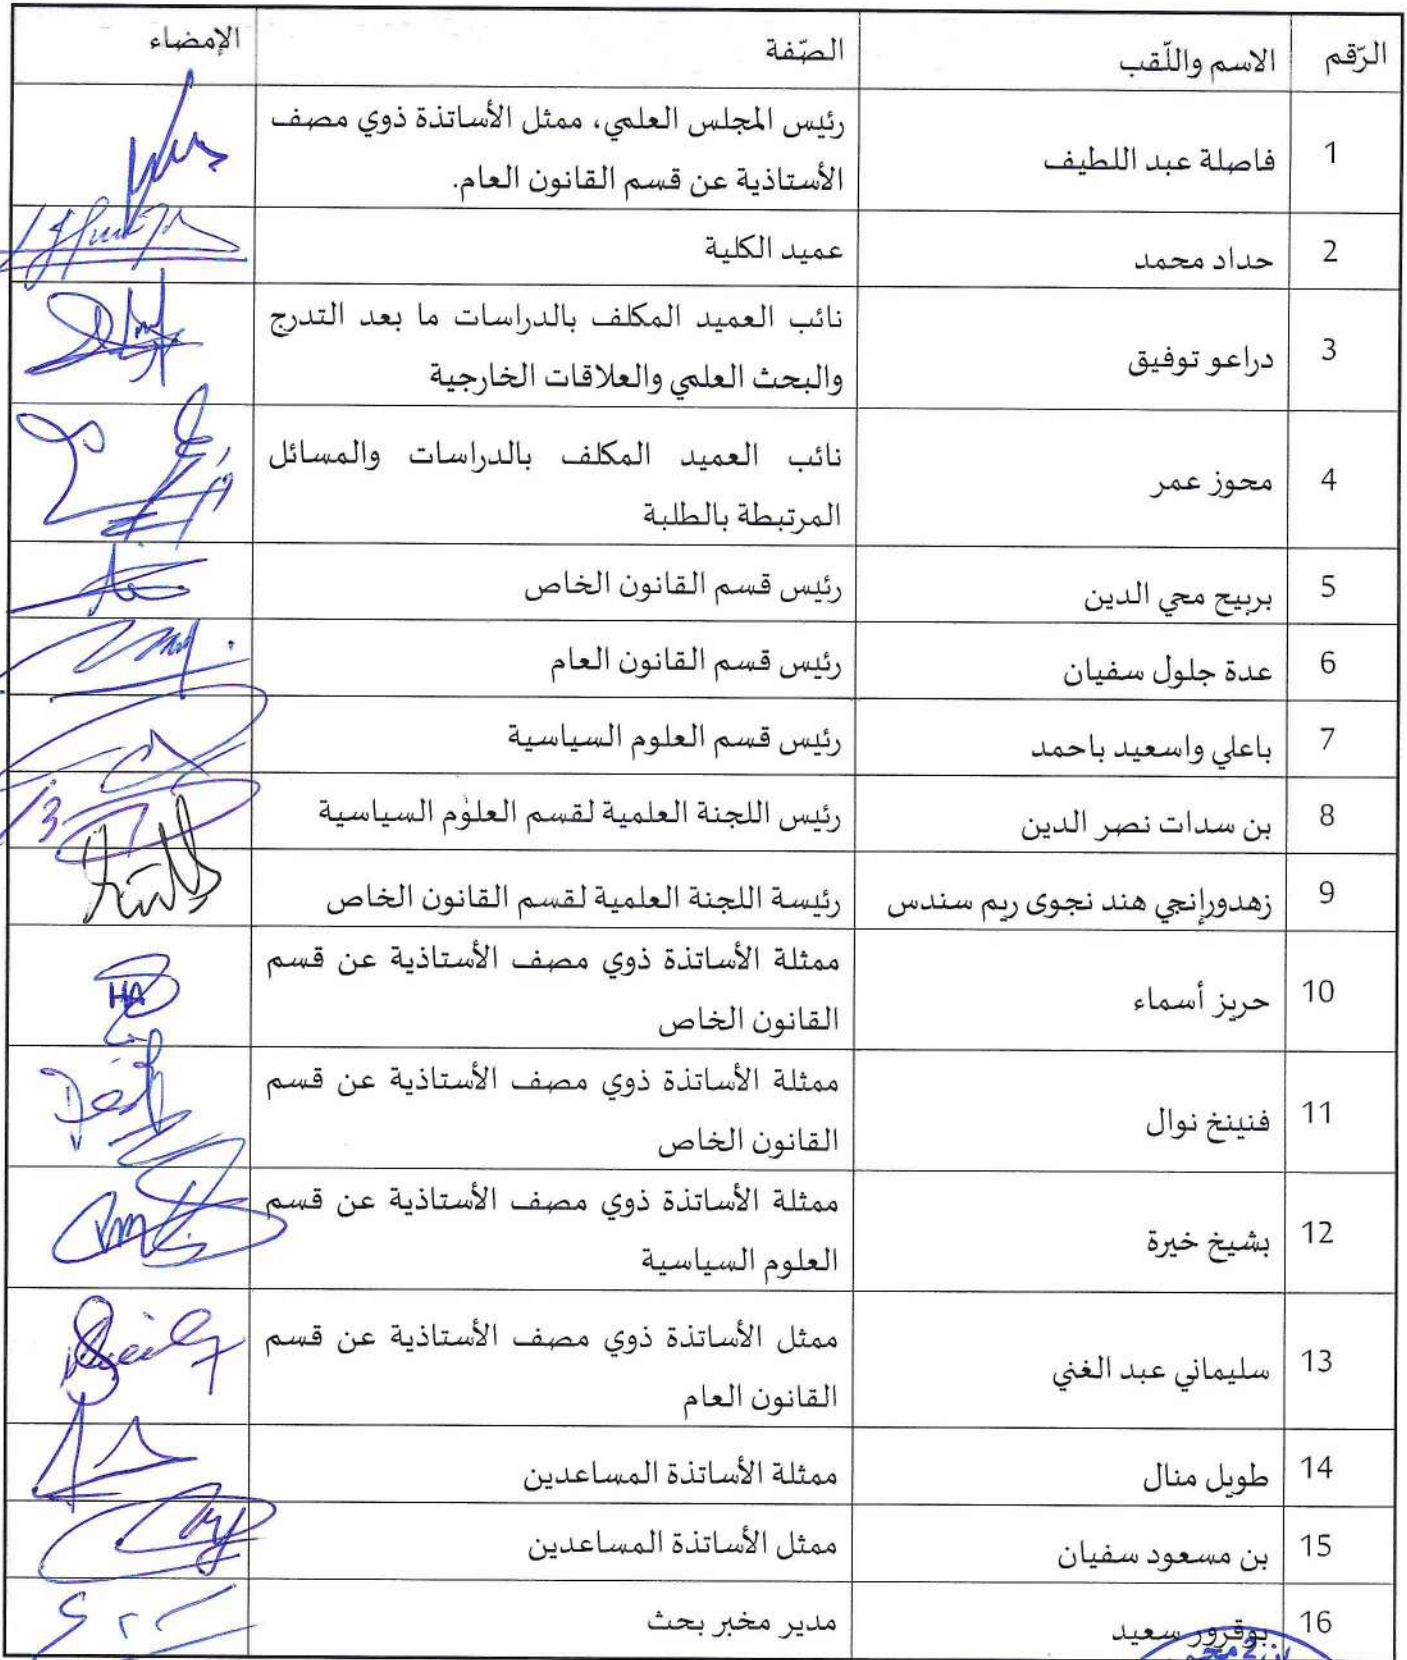 الرّقم الاسم واللّقب الصّفة الإمضاء
1 فاصلة عبد اللطيف رئيس المجلس العلمي، ممثل الأساتذة ذوي مصف
الأستاذية عن قسم القانون العام.
2 حداد محمد عميد الكلية
3 دراعو توفيق نائب العميد المكلف بالدراسات ما بعد التدرج
والبحث العلمي والعلاقات الخارجية
4 محوز عمر نائب العميد المكلف بالدراسات والمسائل
المرتبطة بالطلبة
5 بربيح محي الدين رئيس قسم القانون الخاص
6 عدة جلول سفيان رئيس قسم القانون العام
7 باعلي واسعيد باحمد رئيس قسم العلوم السياسية
8 بن سدات نصر الدين رئيس اللجنة العلمية لقسم العلوم السياسية
9 زهدورإنجي هند نجوى ريم سندس رئيسة اللجنة العلمية لقسم القانون الخاص
10 حريز أسماء ممثلة الأساتذة ذوي مصف الأستاذية عن قسم
القانون الخاص
HA
11 فنينخ نوال ممثلة الأساتذة ذوي مصف الأستاذية عن قسم
القانون الخاص
12 بشيخ خيرة ممثلة الأساتذة ذوي مصف الأستاذية عن قسم
العلوم السياسية
13 سليماني عبد الغني ممثل الأساتذة ذوي مصف الأستاذية عن قسم
القانون العام
14 طويل منال ممثلة الأساتذة المساعدين
15 بن مسعود سفيان ممثل الأساتذة المساعدين
16 بوقرور سعيد مدير مخبر بحث